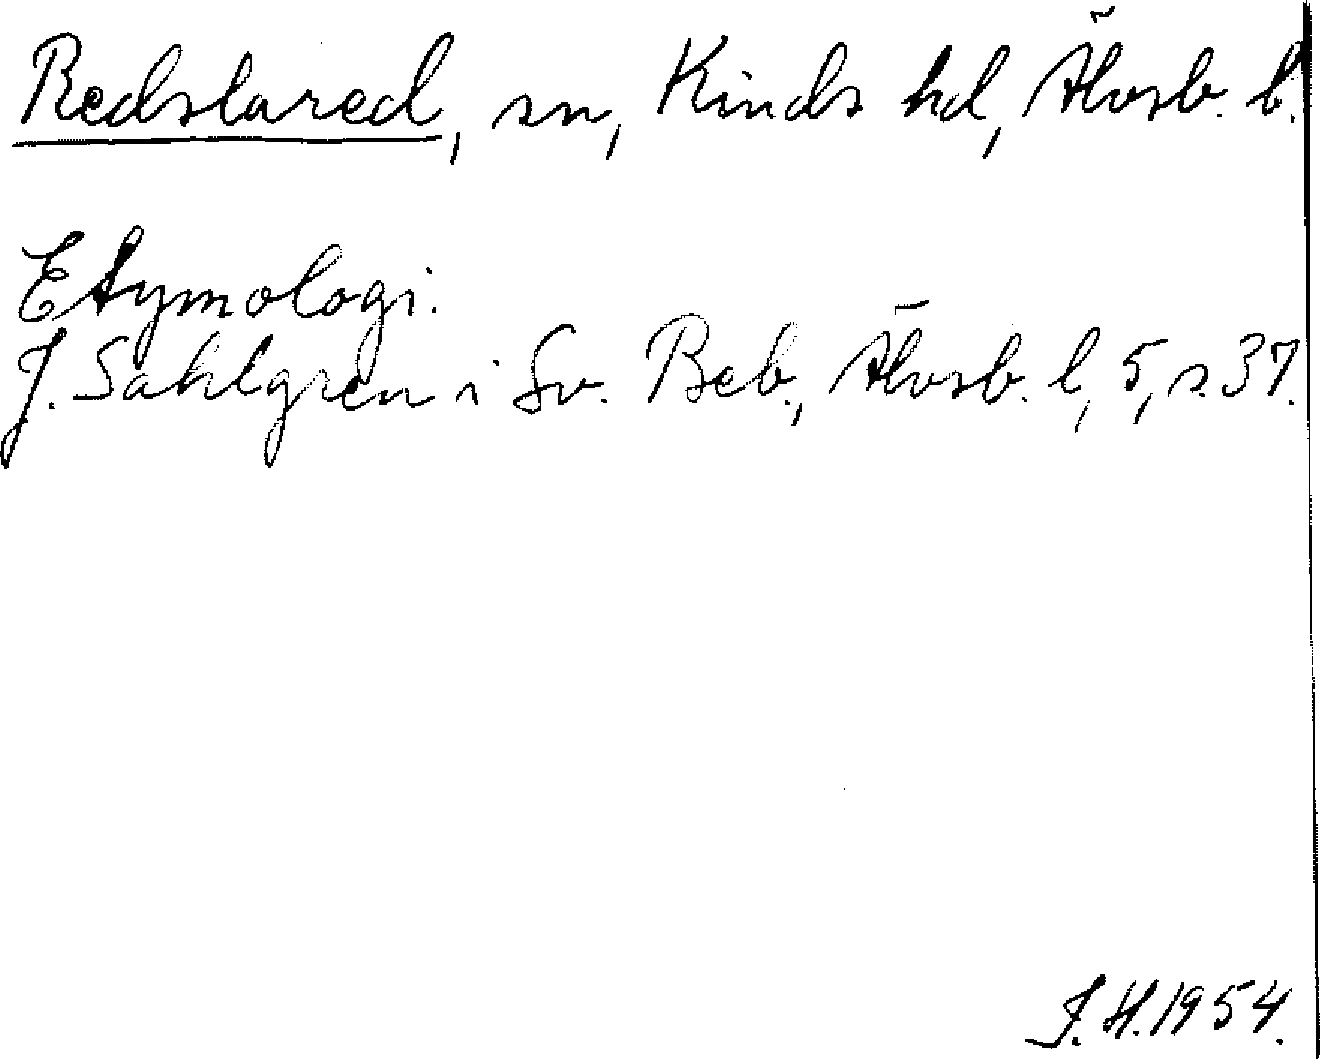 Redslared, sn, Kinds hd, Älvsb. l.
Etymologi.
J. Sahlgren i Sv. Beb., Älvsb. l, 5, s. 37.
J. H. 1954.